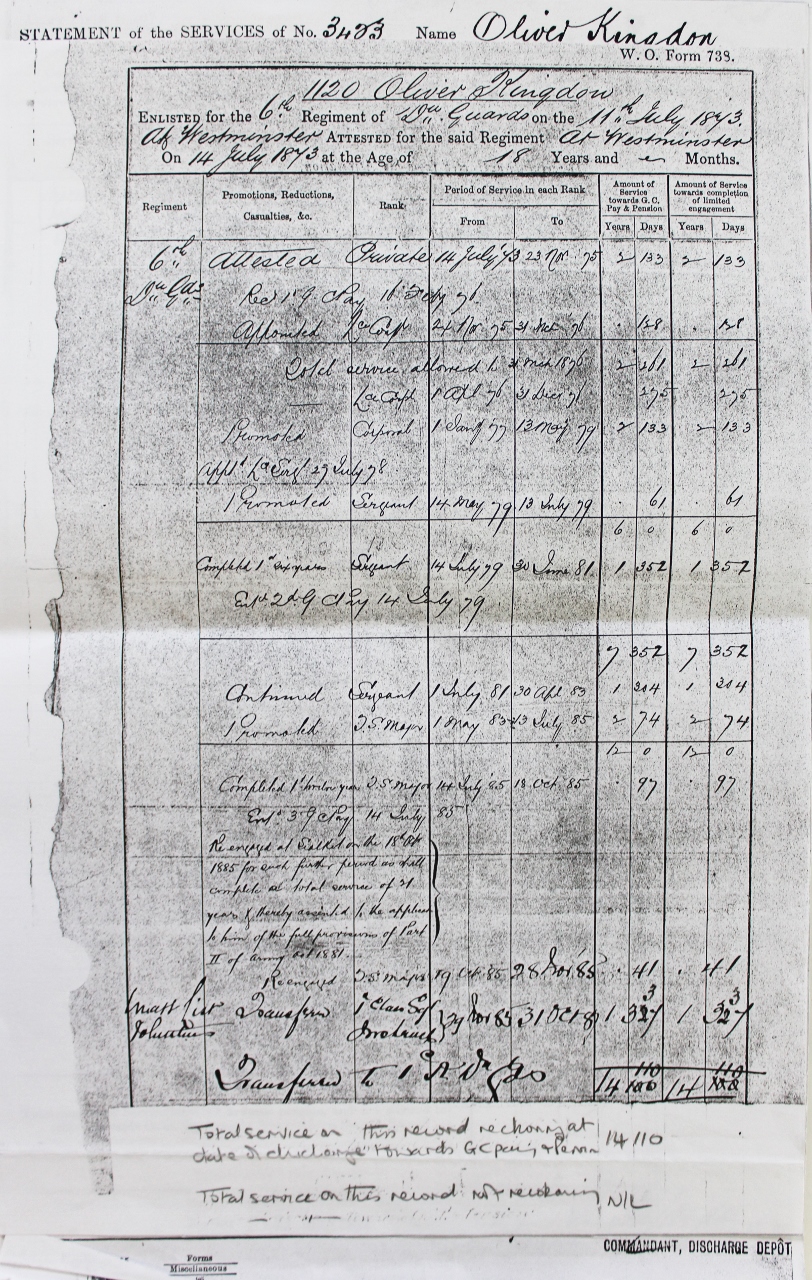 STATEMENT of the SERVICES of No. 3423 Name Oliver Kingdon
W. O. Form 738.
1120 Oliver Kingdon
ENLISTED for the 6th Regiment of Dn. Guards on the 11th July 1873.
At Westminster ATTESTED for the said Regiment At Westminster
On 14 July 1873 at the Age of 18 Years and Months.
Regiment Promotions, Reductions, Casualties, &c. Rank Period of Service in each Rank Amount of Service towards G. C. Pay & Pension Amount of Service towards completion of limited engagement
From To Years Days Years Days
6th Attested Private 14 July 73 23 Nov. 75 2 133 2 133
Dn Gds Recd 1st G. C Pay 16 76.
Appointed Lce Corpl 24 Nov 75 31 Mch 76 . 128 . 128
Total service allowed to 31 Mch 1876 2 261 2 261
— Lce Corpl 1 Apl 76 31 Decr 76 275 275
Promoted Corporal 1 Jany 77 13 May 79 2 133 2 133
Appt Lce Sergt 27 July 78
Promoted Sergeant 14 May 79 13 July 79 . 61 . 61
6 0 6 0
Completed 1st six years Sergeant 14 July 79 30 June 81 1 352 1 352
Entd 2d G C Py 14 July 79
7 352 7 352
Continued Sergeant 1 July 81 30 Apl 83 1 304 1 304
Promoted T. S. Major 1 May 83 13 July 85 2 74 2 74
12 0 12 0
Completed 1st twelve years T. S. Major 14 July 85 18 Oct 85 . 97 . 97
Entd 3 G C Pay 14 July 85
Re-engaged at Sialkot on the 18th Oct
1885 for such further period as shall
complete a total service of 21
years & thereby assented to the applicn
to him of the full provisions of Part
II of Army Act 1881.
Re-engaged T. S. Major 19 Oct 85 28 Nov 85 . 41 . 41
Volunteers Transferred 1 Class Sergt Instructr 29 Nov 85 31 Oct 8 1 337 1 337
Transferred to 1st R. Dn Gds 14 110 14 110
Total service on this record reckoning at
date of discharge towards GC pay & Penn 14/110
Total service on this record not reckoning NIL
COMMANDANT, DISCHARGE DEPÔT
Forms
Miscellaneous